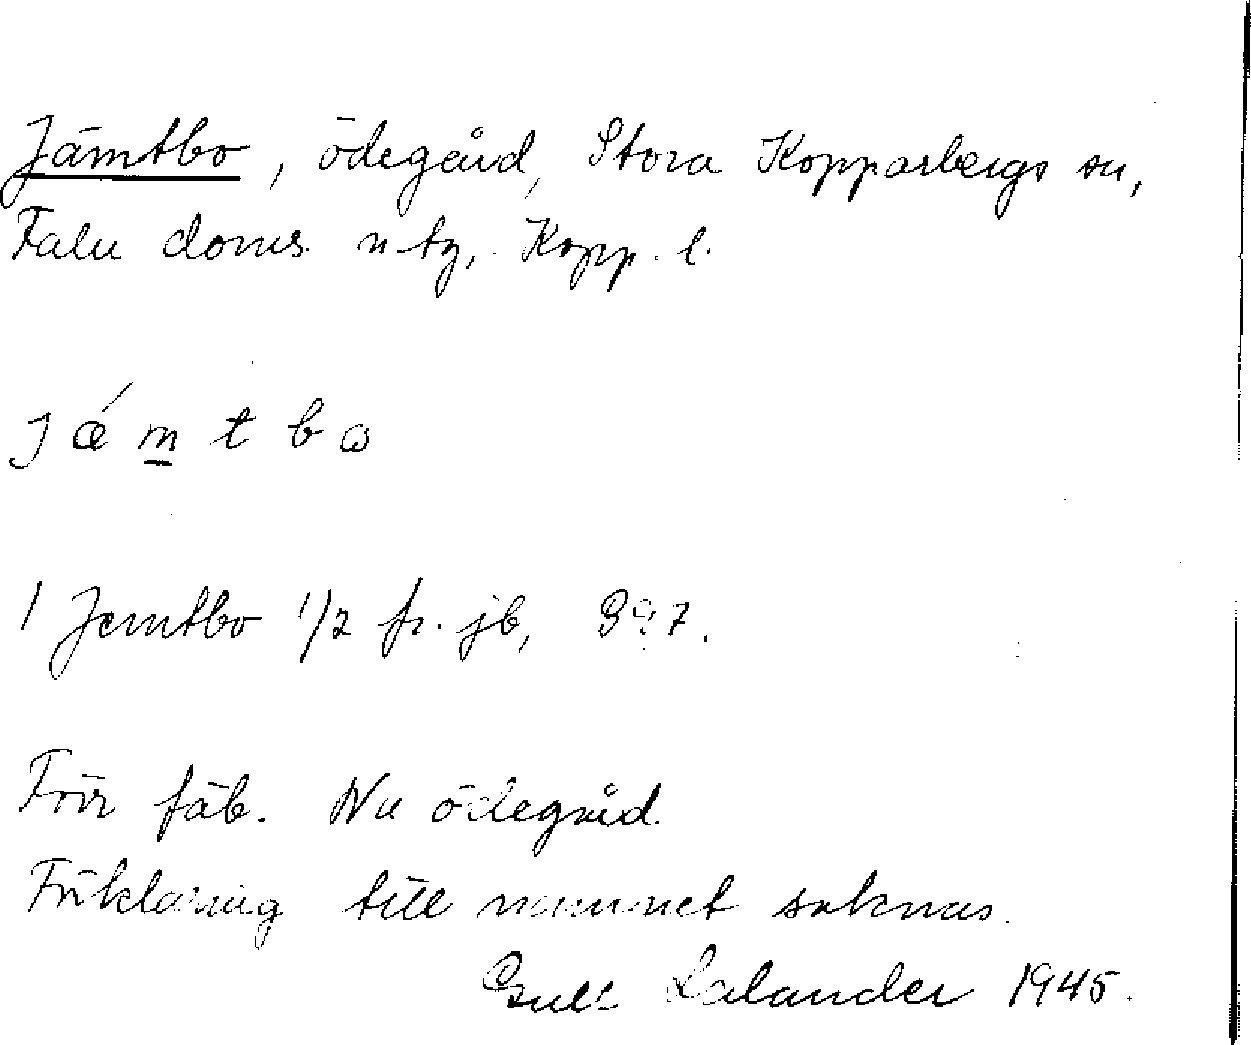 Jämtbo, ödegård, Stora Kopparbergs sn,
Falu doms. n tg, Kopp. l.
J ǽ m t b ω
1 Jemtbo 1/2 fr. jb,
Förr fäb. Nu ödegård.
Förklaring till namnet saknas.
Lalander 1945.